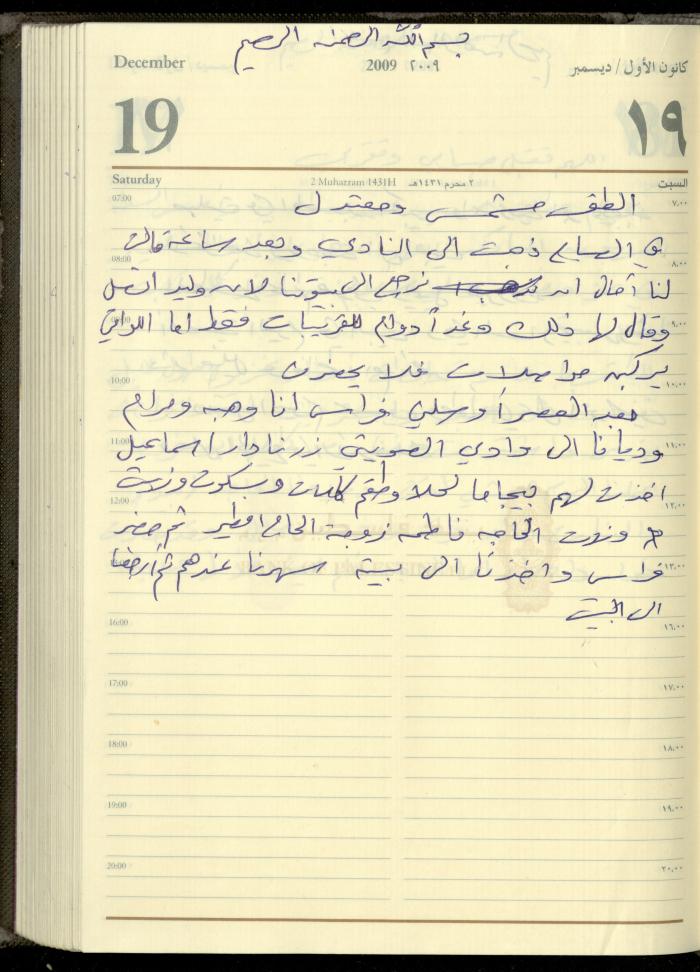 بسم الله الرحمن الرحيم
December 2009 ٢٠٠٩ كانون الأول / ديسمبر
19 ١٩
Saturday 2 Muharram 1431H ٢ محرم ١٤٣١هـ السبت
07:00 الطقس مشمس ومعتدل ٧,٠٠
في ذهبت الى النادي وبعد ساعة قالت
08:00 ٨,٠٠
لنا آمال ان نرجع الى بيوتنا لان وليد اتصل
09:00 وقال لها ذلك وغداً دوام للقريبات فقط اما اللواتي ٩,٠٠
يركبن مواصلات فلا يحضرن
10:00 ١٠,٠٠
بعد العصر أوصلني فراس انا وهبه ومرام
11:00 وديانا الى وادي زرنا دار اسماعيل ١١,٠٠
اخذت لهم بيجاما وطقم وبسكوت وزرت
12:00 ١٢,٠٠
الحاجه فاطمه زوجة الحاج ثم حضر
فراس واخذنا الى بيته سهرنا عندهم ثم ١٣,٠٠
الى البيت
16:00 ١٦,٠٠
17:00 ١٧,٠٠
18:00 ١٨,٠٠
19:00 ١٩,٠٠
20:00 ٢٠,٠٠